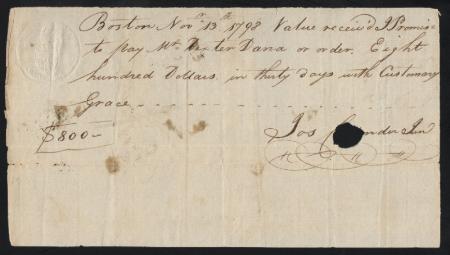 Boston Novr 13th 1798 Value receivd I Promise
to pay Mr Dexter Dana or order. Eight
hundred Dollars in thirty days with Customary
Grace
$800-
Jos Jun